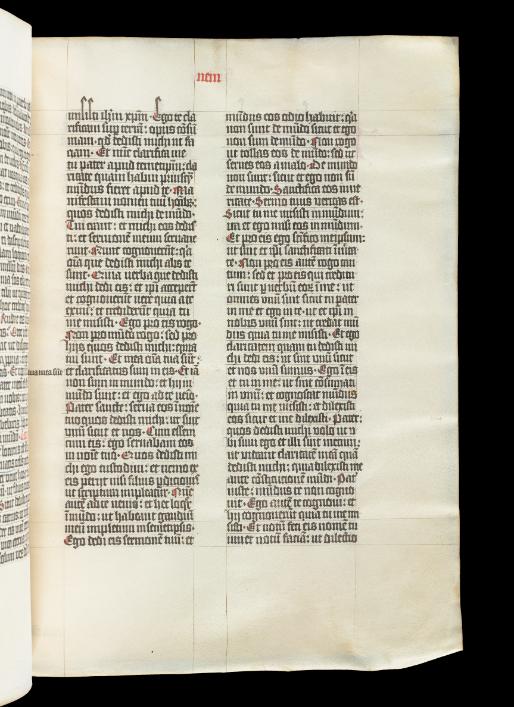 nem
misisti ihm xpm · Ego te cla
rificavi sup terra : opus cosu
mavi · qd dedisti michi ut fa
cia · Et nuc clarifica me
tu pater apud temetipm : cla
ritate quam habui priusqm
mudus fieret apud te · Ma
nifestavi nomen tuu hoib :
quos dedisti michi de mudo ·
Tui erant : et michi eos dedis
ti : et sermonem tuum servave
runt · Nunc cognoverut : qa
oia que dedisti michi abs te
sunt · Quia verba que dedisti
michi dedi eis : et ipi acceperut
et cognoverut vere quia a te
exivi : et crediderut quia tu
me misisti · Ego pro eis rogo ·
Non pro mudo rogo : sed pro
hiis quos dedisti michi : quia
tui sunt · Et mea oia tua sut :
tua mea sut
et clarificatus sum in eis · Et ia
non sum in mundo : et hii in
mudo sunt : et ego ad te venio ·
Pater sancte : serva eos in noie
tuo quos dedisti michi : ut sint
unu sicut et nos · Cum essem
cum eis : ego servabam eos
in noie tuo · Quos dedisti mi
chi ego custodivi : et nemo ex
eis periit nisi filius pdicionis
ut scriptura impleatur · Nuc
aute ad te venio : et hec loqr
i mudo : ut habeant gaudiu
meu impletum in semetipsis ·
Ego dedi eis sermone tuu : et
mudus eos odio habuit : qa
non sunt de mudo sicut et ego
non sum de mudo · Non rogo
ut tollas eos de mudo : sed ut
serves eos a malo · De mundo
non sunt : sicut et ego non su
de mundo · Sanctifica eos in ve
ritate · Sermo tuus veritas est ·
Sicut tu me misisti in mundum :
ita et ego misi eos in mundum ·
Et pro eis ego sctifico meipsum :
ut sint et ipi sanctificati i verita
te · Non pro eis autem rogo tan
tum : sed et pro eis qui credituri
sunt p verbu eor in me : ut
omnes unu sint sicut tu pater
in me et ego in te · ut et ipi in
nobis unu sint : ut credat mu
dus quia tu me misisti · Et ego
claritatem quam tu dedisti mi
chi dedi eis : ut sint unu sicut
et nos unu sumus · Ego i eis
et tu in me : ut sint cosumati
in unu : et cognoscat mudus
quia tu me misisti : et dilexisti
eos sicut et me dilexisti · Pater :
quos dedisti michi volo ut u
bi sum ego et illi sint mecum :
ut videant claritatem mea qua
dedisti michi : quia dilexisti me
ante costitutionem mudi · Pat
iuste : mudus te non cogno
vit · Ego autem te cognovi : et
hii cognoverut quia tu me mi
sisti · Et notu feci eis nome tu
um et notu facia : ut dilectio